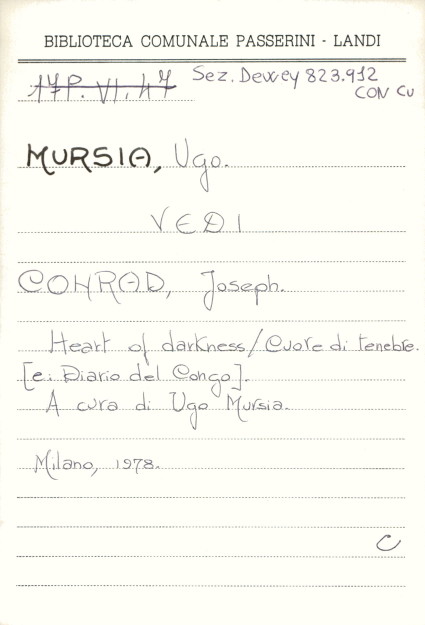 BIBLIOTECA COMUNALE PASSERINI - LANDI
17P. VI. 47 Sez. Dewey 823.912
CON CU
MURSIA, Ugo.
VEDI
CONRAD, Joseph.
Heart of darkness/Cuore di tenebre.
[e: Diario del Congo].
A cura di Ugo Mursia.
Milano, 1978.
C